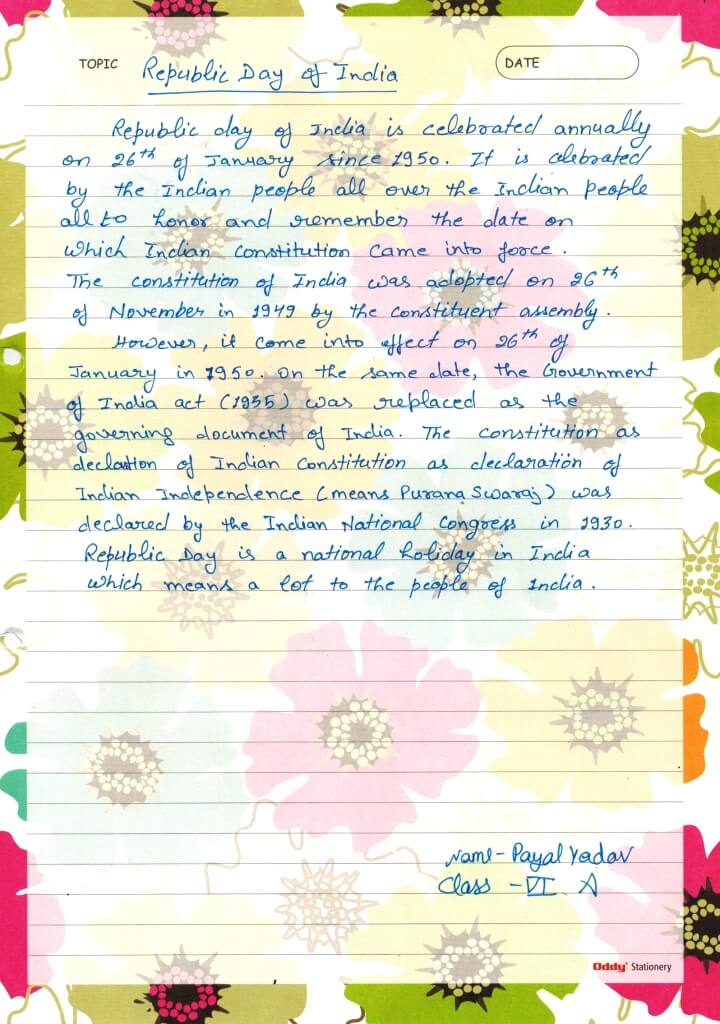 TOPIC Republic Day of India DATE
Republic day of India is celebrated annually
on 26th of January since 1950. It is clebrated
by the Indian people all over the Indian people
all to honor and remember the date on
which Indian constitution came into force.
The constitution of India was adopted on 26th
of November in 1949 by the constituent assembly.
However, it come into effect on 26th of
January in 1950. On the same date, the Government
of India act (1955) was replaced as the
governing document of India. The constitution as
declation of Indian Constitution as declaration of
Indian Independence (means Purana Swaraj) was
declared by the Indian National Congress in 1930.
Republic Day is a national holiday in India
which means a lot to the people of India.
Name - Payal Yadav
Class - VI A
Oddy Stationery